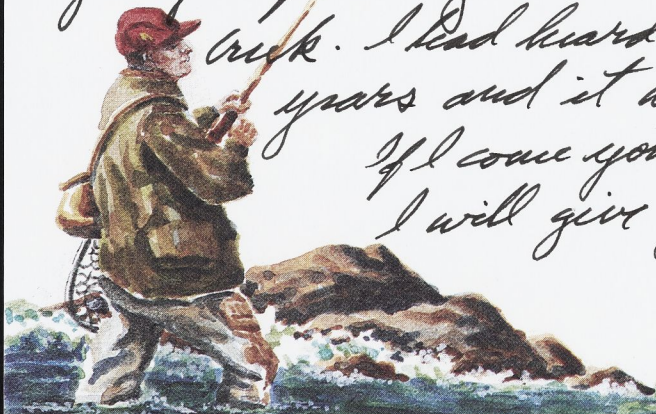 crick. I had heard
years and it
If I come you
I will give